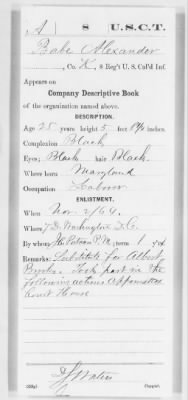 A 8 U.S.C.T.
Babe Alexander
, Co. K, 8 Reg't U. S. Col'd Inf.
Appears on
Company Descriptive Book
of the organization named above.
DESCRIPTION.
Age 25 years; height 5 feet inches.
Complexion Black
Eyes Black; hair Black.
Where born Maryland
Occupation Laborer
ENLISTMENT.
When Nov. 2/64.
Where Washington D.C.
By whom Putnam P.M.; term 1 y'rs.
Remarks: Substitute for Albert
Brooks. Took part in the
following actions Appomattox
Court House
Waters
Copyist.